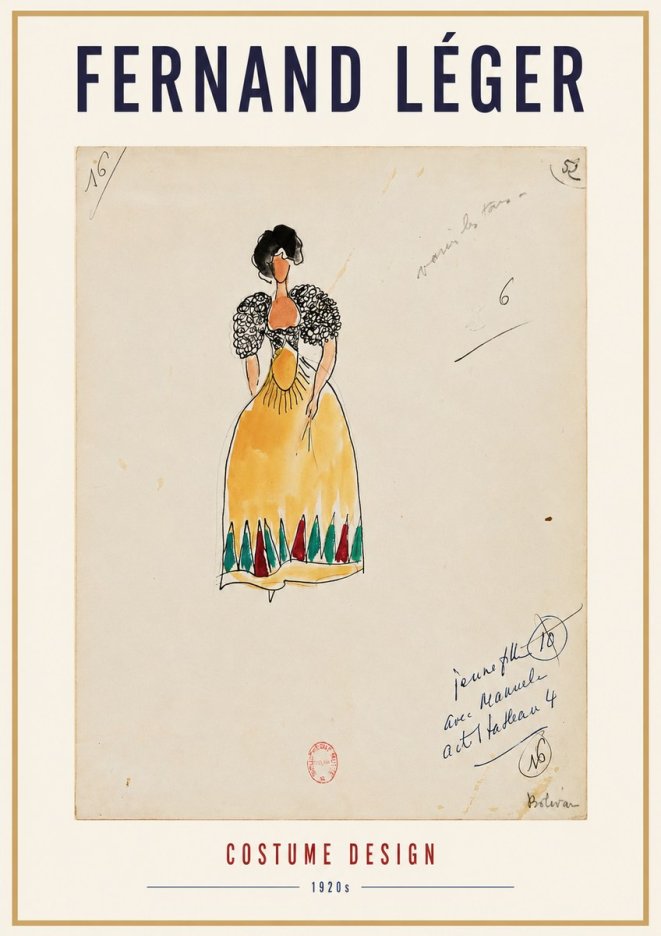 FERNAND LÉGER
16
52
varier les tons
6
jeune fille 10
avec Manuela
act 1 tableau 4
16
Bolivar
COSTUME DESIGN
1920s